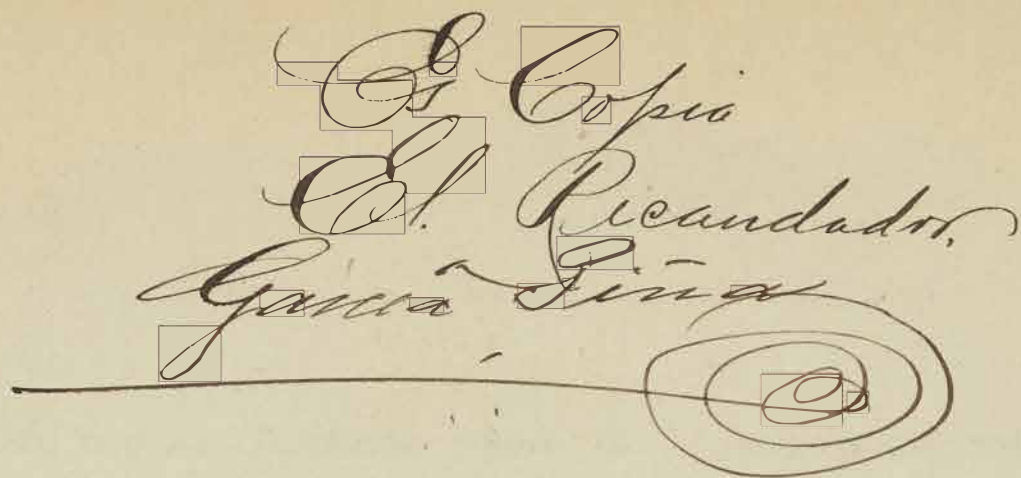 Es Copia
El Recaudador,
Garcia